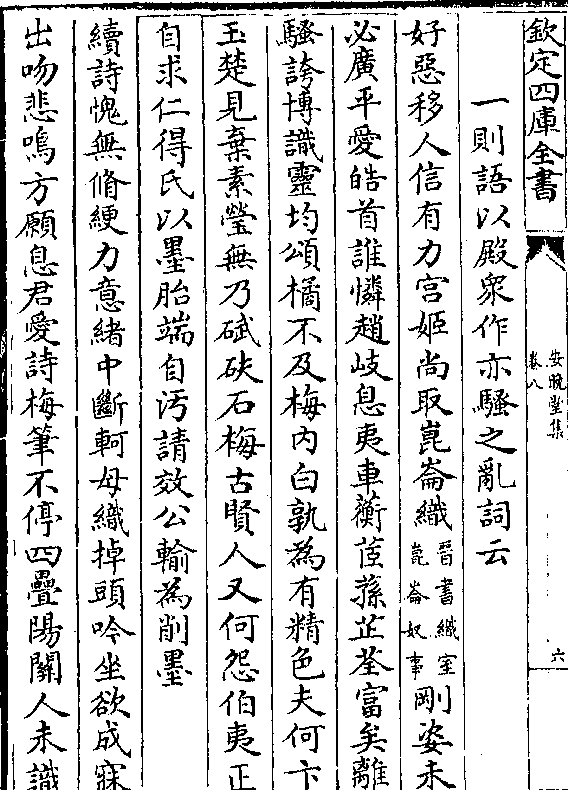 欽定四庫全書
安晚堂集
卷八
六
一則語以殿衆作亦騷之亂詞云
好惡移人信有力宫姬尚取崑崙織晉書織室崑崙奴事剛姿未
必廣平愛皓首誰憐趙岐息夷車蘅茝蓀芷荃富矣離
騷誇博識靈均頌橘不及梅内白孰為有精色夫何卞
玉楚見棄素瑩無乃碔砆石梅古賢人又何怨伯夷正
自求仁得氏以墨胎端自汚請效公輸為削墨
續詩愧無脩綆力意緒中斷軻母織掉頭吟坐欲成寐
出吻悲鳴方願息君愛詩梅筆不停四疊陽關人未識